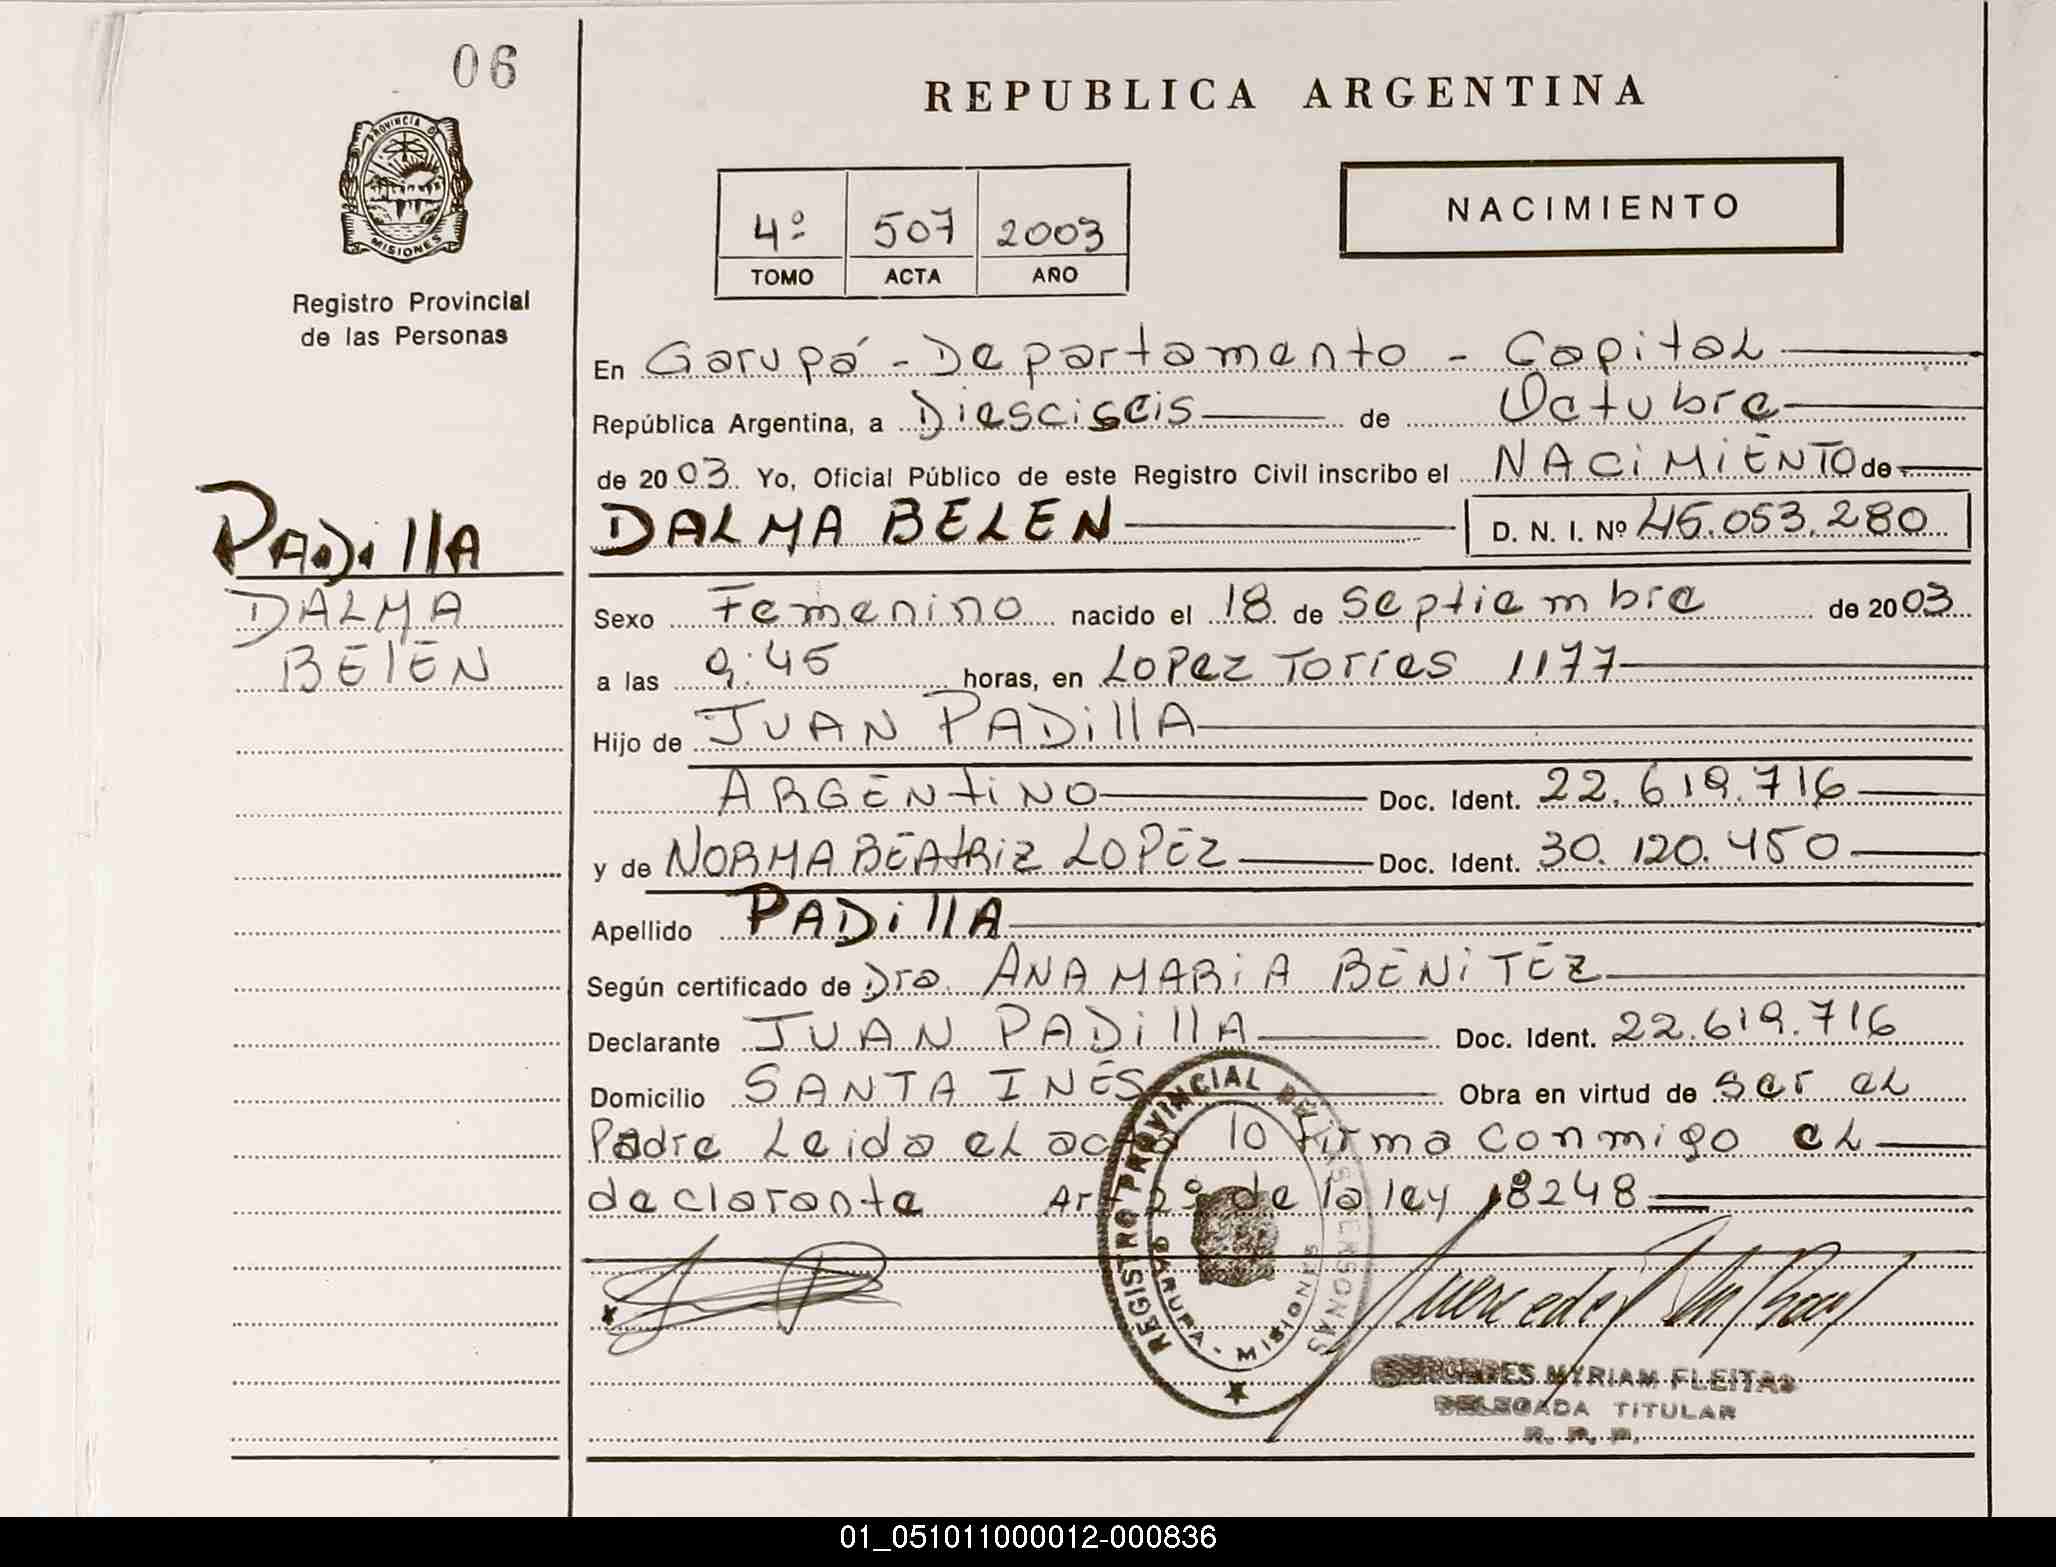 06
REPUBLICA ARGENTINA
PROVINCIA D
MISIONES
Registro Provincial
de las Personas
4º 507 2003
TOMO ACTA AÑO
NACIMIENTO
En Garupá - Departamento - Capital
República Argentina, a Diesciseis de Octubre
de 2003 Yo, Oficial Público de este Registro Civil inscribo el NACIMIENTO de
PADILLA
DALMA
BELEN
DALMA BELEN D. N. I. Nº 45.053.280
Sexo Femenino nacido el 18 de Septiembre de 2003
a las 9:45 horas, en Lopez Torres 1177
Hijo de JUAN PADILLA
ARGENTINO Doc. Ident. 22.619.716
y de NORMA BEATRIZ LOPEZ Doc. Ident. 30.120.450
Apellido PADILLA
Según certificado de Dra. ANA MARIA BENITEZ
Declarante JUAN PADILLA Doc. Ident. 22.619.716
Domicilio SANTA INÉS Obra en virtud de ser el
Padre Leida el acta lo firma conmigo el
declarante Art 2º de la ley 18248
REGISTRO PROVINCIAL DE LAS PERSONAS
GARUPA - MISIONES
MYRIAM FLEITAS
DELEGADA TITULAR
R. P. P.
01_051011000012-000836